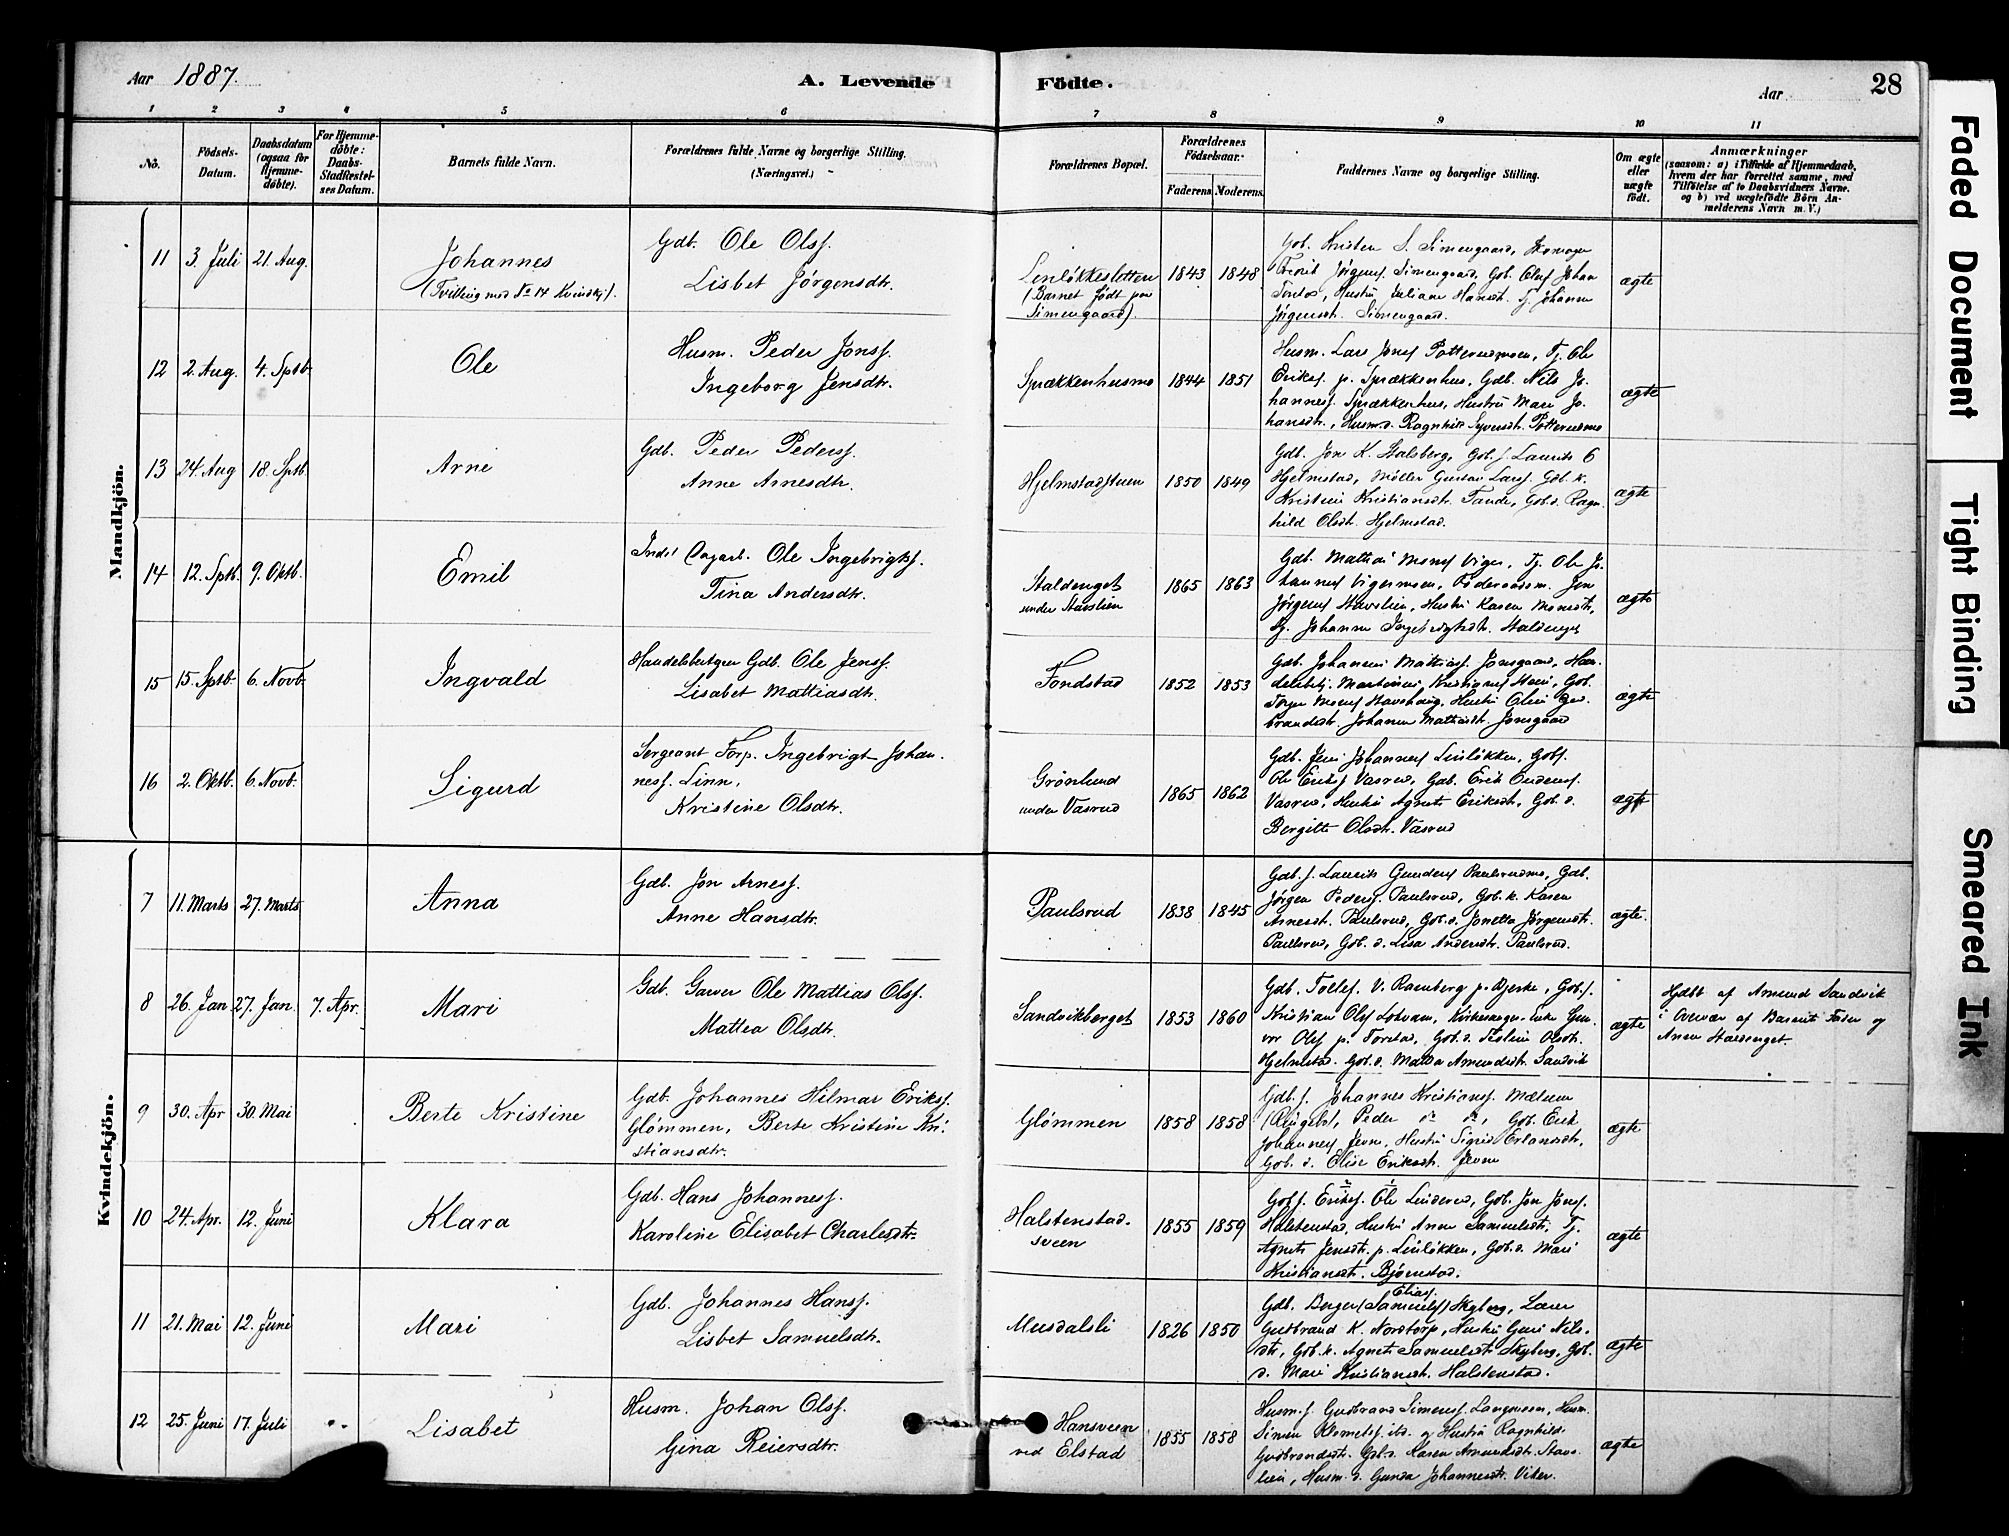 Aar 1887.
A. Levende
Födte.
Aar
28
1 2 3 4 5 6 7 8 9 10 11
No.
Födsels-Datum.
Daabsdatum (ogsaa for Hjemme-döbte).
For Hjemme-döbte: Daabs-Stadfæstel-ses Datum.
Barnets fulde Navn.
Forældrenes fulde Navne og borgerlige Stilling. (Næringsvei.)
Forældrenes Bopæl.
Forældrenes Födselsaar.
Faderens. Moderens.
Faddernes Navne og borgerlige Stilling.
Om ægte eller uægte födt.
Anmærkninger
(saasom: a) i Tilfælde af Hjemmedaab, hvem der har forrettet samme, med Tilföielse af to Daabsvidners Navne. og b) ved uægtefödte Börn An-melderens Navn m. V.)
Mandkjön.
11 3. Juli 21. Aug. Johannes
(Tvilling med No 14 Kvindekj.).
Gdb. Ole Olsf.
Lisbet Jörgensdtr.
Linløkkesletten
(Barnet født paa
Simengaard).
1843 1848
Simengaard,
Jörgensdt. Simengaard.
ægte
12 2. Aug. 4. Sptb. Ole
Husm. Peder Jonsf.
Ingeborg Jensdtr.
Sprækkenhusmo
1844 1851
Husm. Lars Jonsf Potterudmoen, Tj. Ole
Eriksf. p. Sprækkenhus, Gdb. Nils Jo-
hannesf. Sprækkenhus, Hustru Mari Jo-
hansdt., Husm.d. Ragnhild Syversdt. Potterudmo
ægte
13 24. Aug 18. Sptb. Arne
Gdb. Peder Pedersf.
Anne Arnesdtr.
Hjelmstadstuen
1850 1849
Gdb. Jon K. Stalsberg, Gdb. f. Laurits
Hjelmstad, Møller Gustav Larsf. Gdb. k.
Kristine Kristiansdt. Tande, Gdb.d. Ragn-
hild Olsdt. Hjelmstad.
ægte
14 12. Sptb. 9. Oktb. Emil
Inds. Dagarb. Ole Ingebrigtsf.
Tina Andersdtr.
Staldenget
under Stavslien
1865 1863
Gdb. Mathias Monsf Viger, Tj. Ole Jo-
hannesf Vigermoen, Föderaadsm. Jon
Jörgensf Stavslien, Hustru Karen Monsdt.,
Tj. Johanne Ingebrigtsdt. Staldenget
ægte
15 15. Sptb. 6. Novb. Ingvald
Handelsbetjen Gdb. Ole Jensf.
Lisabet Mattiasdtr.
Fondstad
1852 1853
Gdb. Johannes Mattiasf. Jonsgaard, Han-
delsbetj. Martinius Kristiansf
brandsdt. Johanne Mathiasdt. Jonsgaard
ægte
16 2. Oktb. 6. Novb. Sigurd
Sergeant Forp. Ingebrigt Johan-
nesf. Linn,
Kristine Olsdtr.
Grønlund
under Vasrud
1865 1862
Gdb. Jens Johannesf Linløkken, Gdbf.
Ole Eriksf Vasrud, Gdb. Erik
Vasrud, Hustru Agnete Eriksdt., Gdb. d.
Bergitte Olsdt. Vasrud
ægte
Kvindekjön.
7 11. Marts 27. Marts Anna
Gdb. Jon Arnesf.
Anne Hansdtr.
Paulsrud
1838 1845
Gdb. f. Laurits Gundersf Paulsrudmo, Gdb.
Jörgen Pedersf. Paulsrud, Gdb. k. Karen
Arnesdt. Paulsrud, Gdb.d. Jonetta Jörgensdt.
Paulsrud, Gdb. d. Lisa Andersdt. Paulsrud.
ægte.
8 26. Jan 27. Jan. 7. Apr. Mari
Gdb. Garver Ole Mattias Olsf.
Mattea Olsdtr.
Sandvikberget
1853 1860
Gdb. Tollef. V. Ramberg p. Bjerke, Gdb.f.
Kristian Olsf
Olsf p. Forstad, Gdb.d. Olsdt.
Hjelmstad. Gdb.d. Mattea Amundsdt. Sandvik
ægte
Hjdbt af Amund Sandvik
i Overvær af Barnets Fader og
Anne Staldenget.
9 30. Apr 30. Mai Berte Kristine
Gdb. Johannes Hilmar Eriksf.
Glömmen, Berte Kristine Kri-
stiansdtr.
Glömmen
1858 1858
Gdb. f. Johannes Kristiansf. Mælum
(Ringebu), Peder do do, Gdb. Erik
Johannesf Jevne, Hustru Sigrid Erlandsdt,
Gdb. d. Elise Eriksdt. Jevne
ægte
10 24. Apr. 12. Juni Klara
Gdb. Hans Johannesf.
Karoline Elisabet Charlesdtr.
Halstenstad-
sveen
1855 1859
Gdbf. Eriksf. Ole Linderud, Gdb. Jon Jonsf.
Halstenstad, Hustru Anne Samuelsdt, Tj.
Agnete Jensdt. p. Linløkken, Gdb.d. Mari
Kristiansdt. Bjørnstad.
ægte
11 21. Mai 12. Juni Mari
Gdb. Johannes Hansf.
Lisbet Samuelsdtr.
Musdalsli
1826 1850
Eliasf.
Gdb. Berger (Samuelsf) Skyberg, Lærer
Gudbrand K. Nordtorp, Hustru Guri Nils-
dt, Gdb.k. Agnete Samuelsdt Skyberg, Gdb.
d. Mari Kristiansdt. Halstenstad.
ægte
12 25. Juni 17. Juli Lisabet
Husm. Johan Olsf.
Gina Reiersdtr.
Hansveen
ved Elstad
1855 1858
Husm.f. Gudbrand Simensf. Langmoen, Husm.
Simen Klemetsf. ibd. og Hustru Ragnhild
Gudbrandsdt. Gdb.d. Karen Amundsdt. Stavs-
lien, Husm. d. Gunda Johannesdt. Viken.
ægte
Faded Document
Tight Binding
Smeared Ink